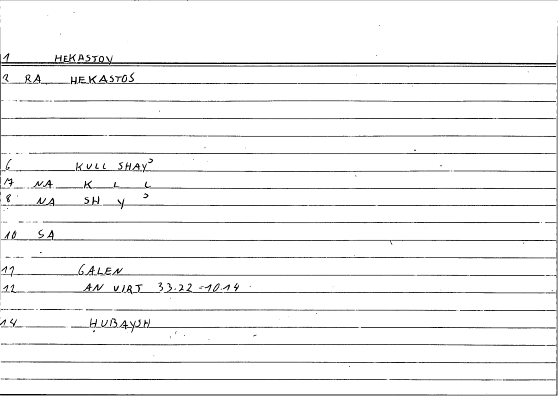 1 HEKASTOV
2 RA HEKASTOS
6 KULL SHAYʾ
17 NA K L L
8 NA SH Y ʾ
10 SA
11 GALEN
12 AN VIRT 33.22 - 10.14
14 HUBAYSH